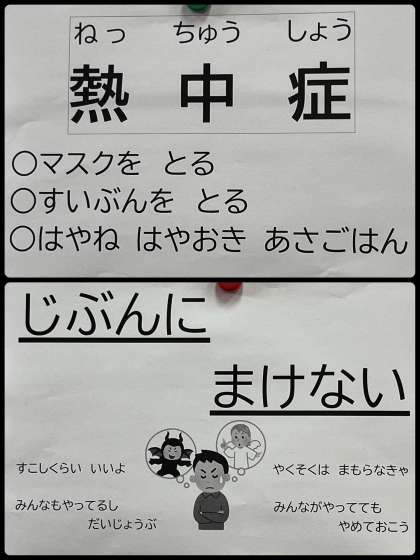 ねっ ちゅう しょう
熱中症
○マスクを とる
○すいぶんを とる
○はやね はやおき あさごはん
じぶんに
まけない
すこしくらい いいよ
みんなもやってるし
だいじょうぶ
やくそくは まもらなきゃ
みんながやってても
やめておこう